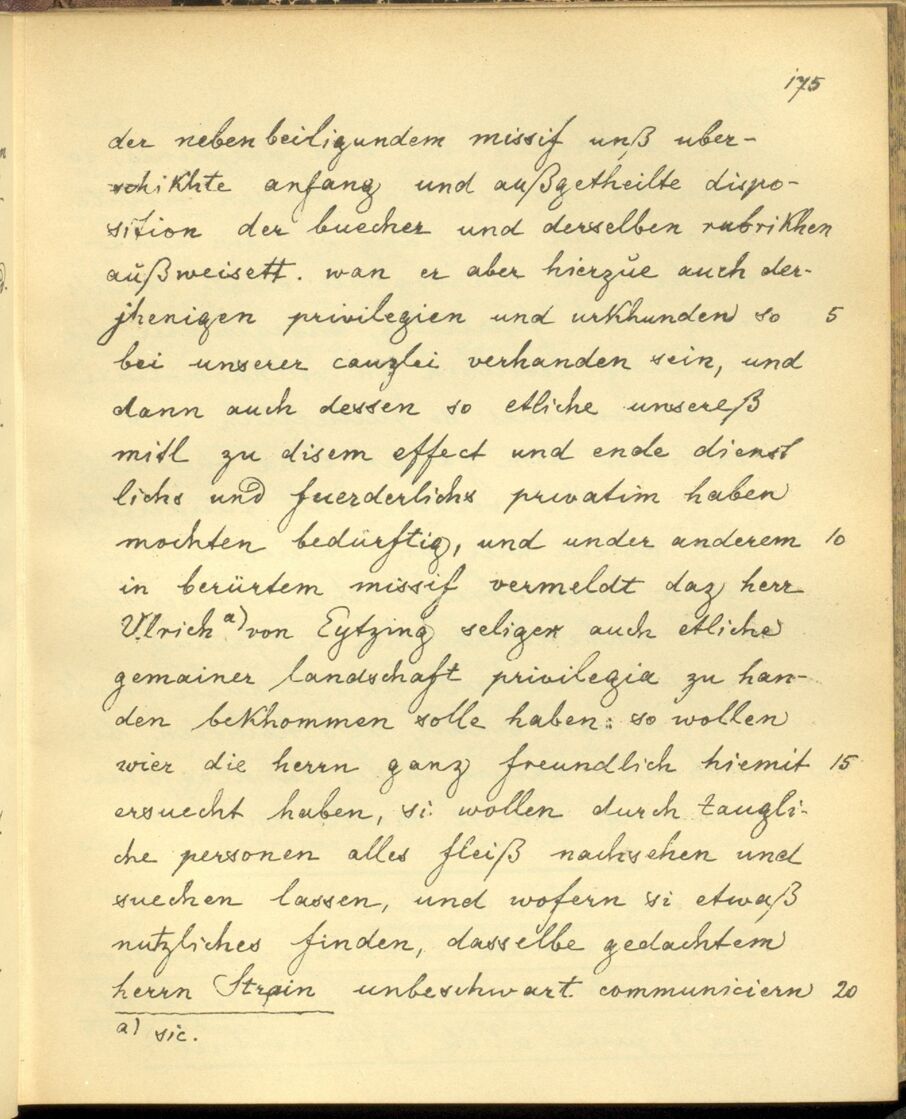 175
der nebenbeiligundem missif unß uber-
schikhte anfang und außgetheilte dispo-
sition der buecher und derselben rubrikhen
außweisett. wan er aber hierzue auch der-
jhenigen privilegien und urkhunden so 5
bei unserer canzlei verhanden sein, und
dann auch dessen so etliche unsereß
mitl zu disem effect und ende dienst
lichs und fuerderlichs privatim haben
mochten bedürftig, und under anderem 10
in berürtem missif vermeldt daz herr
Ulrich a) von Eytzing seliger auch etliche
gemainer landschaft privilegia zu han-
den bekhommen solle haben: so wollen
wier die herrn ganz freundlich hiemit 15
ersuecht haben, si wollen durch taugli-
che personen alles fleiß nachsehen und
suechen lassen, und wofern si etwaß
nutzliches finden, dasselbe gedachtem
herrn Strein unbeschwart communiciern 20
a) sic.